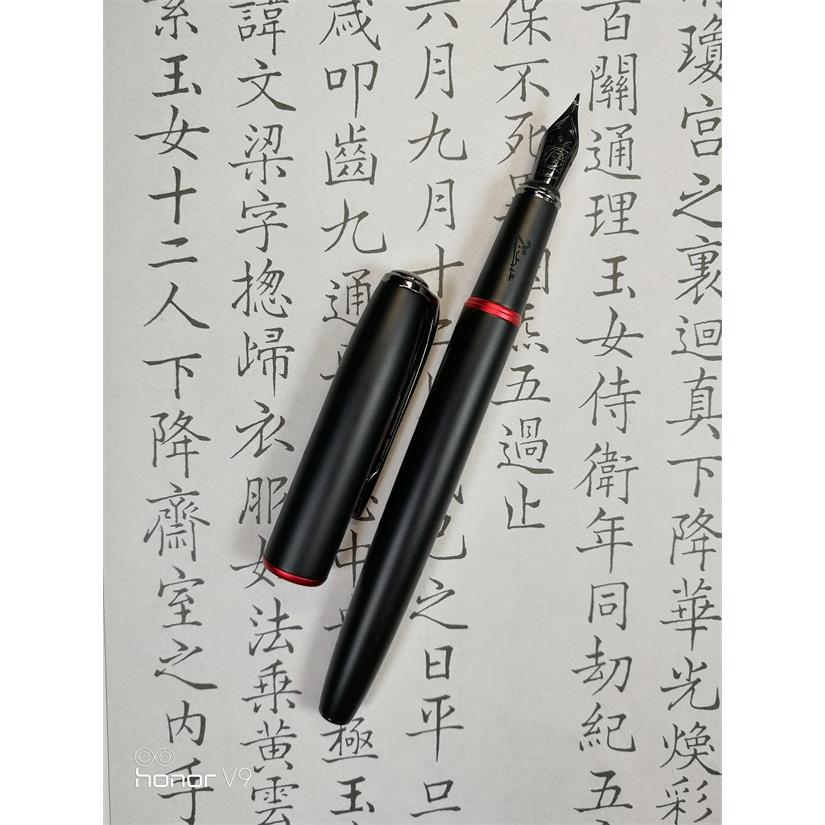 瓊宮之裏迴真下降華光煥彩
百關通理玉女侍衛年同劫紀五
保不死 五過止
六月九月十 之日平旦
歲叩齒九通 中 極玉
諱文梁字揔歸衣服女法乘黃雲
玉女十二人下降齋室之內手
honor V9